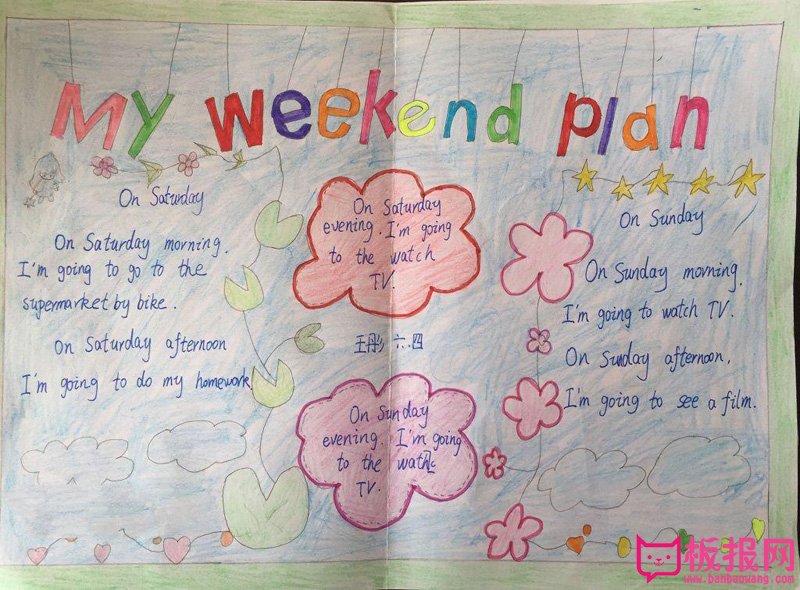 My weekend plan
On Saturday
On Saturday morning.
I'm going to go to the
supermarket by bike.
On Saturday afternoon
I'm going to do my homework
On Saturday
evening. I'm going
to the watch
TV.
王彤 六.四
On Sunday
evening. I'm going
to the watch
TV.
On Sunday
On Sunday morning.
I'm going to watch TV.
On Sunday afternoon,
I'm going to see a film.
板报网
www.banbaowang.com